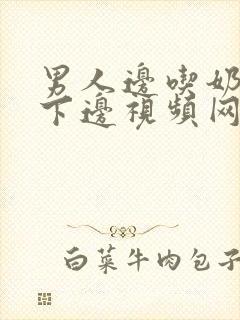 男人邊喫奶
下邊視頻网
白菜牛肉包子